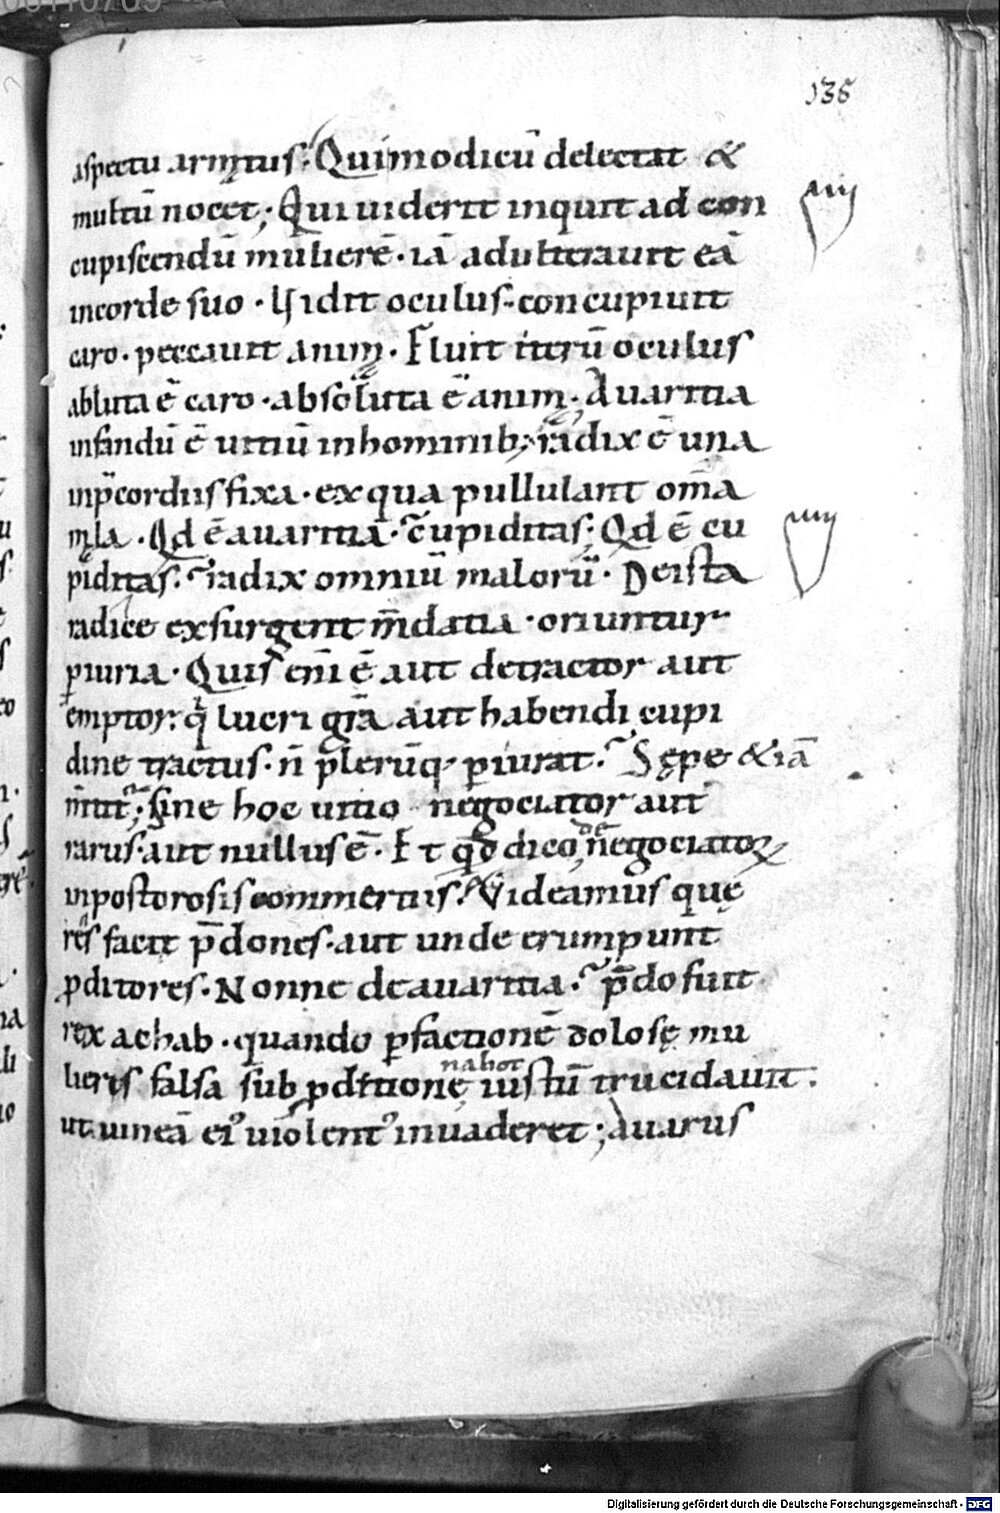 136
aspectu armatus. Qui modicū delectat &
multū nocet; Qui uiderit inquit ad con
cupiscendū mulierē · iā adulterauit eā
in corde suo · Vidit oculus · concupiuit
caro · peccauit anima · Fluit iterū oculus
abluta ē caro · absoluta ē anima · Auaritia
infandū ē uitiū in hominib; radix ē una
in p̄cordiis fixa · ex qua pullulant om̄a
mala · Qd ē auaritia · cupiditas; Qd ē cu
piditas · radix omniū malorū · De ista
radice exsurgent m̄datia · oriuntur
piuria · Quis eni ē aut detractor aut
emptor · q̄ lucri gr̄a aut habendi cupi
dine tractus · n̄ plerūq; piurat · Sępe & iā
sine hoc uitio negociator aut
rarus · aut nullus ē · Et qd dico de negociatoꝝ
inpostorosis commertiis · Videamus quę
res facit p̄dones · aut unde erumpunt
pditores · Nonne de auaritia · p̄do fuit
rex achab · quando p factionē dolosę mu
lieris falsa sub pditionę nabot iustū trucidauit ·
ut uineā ei᾽ uiolent᾽ inuaderet; Auarus
Digitalisierung gefördert durch die Deutsche Forschungsgemeinschaft - DFG